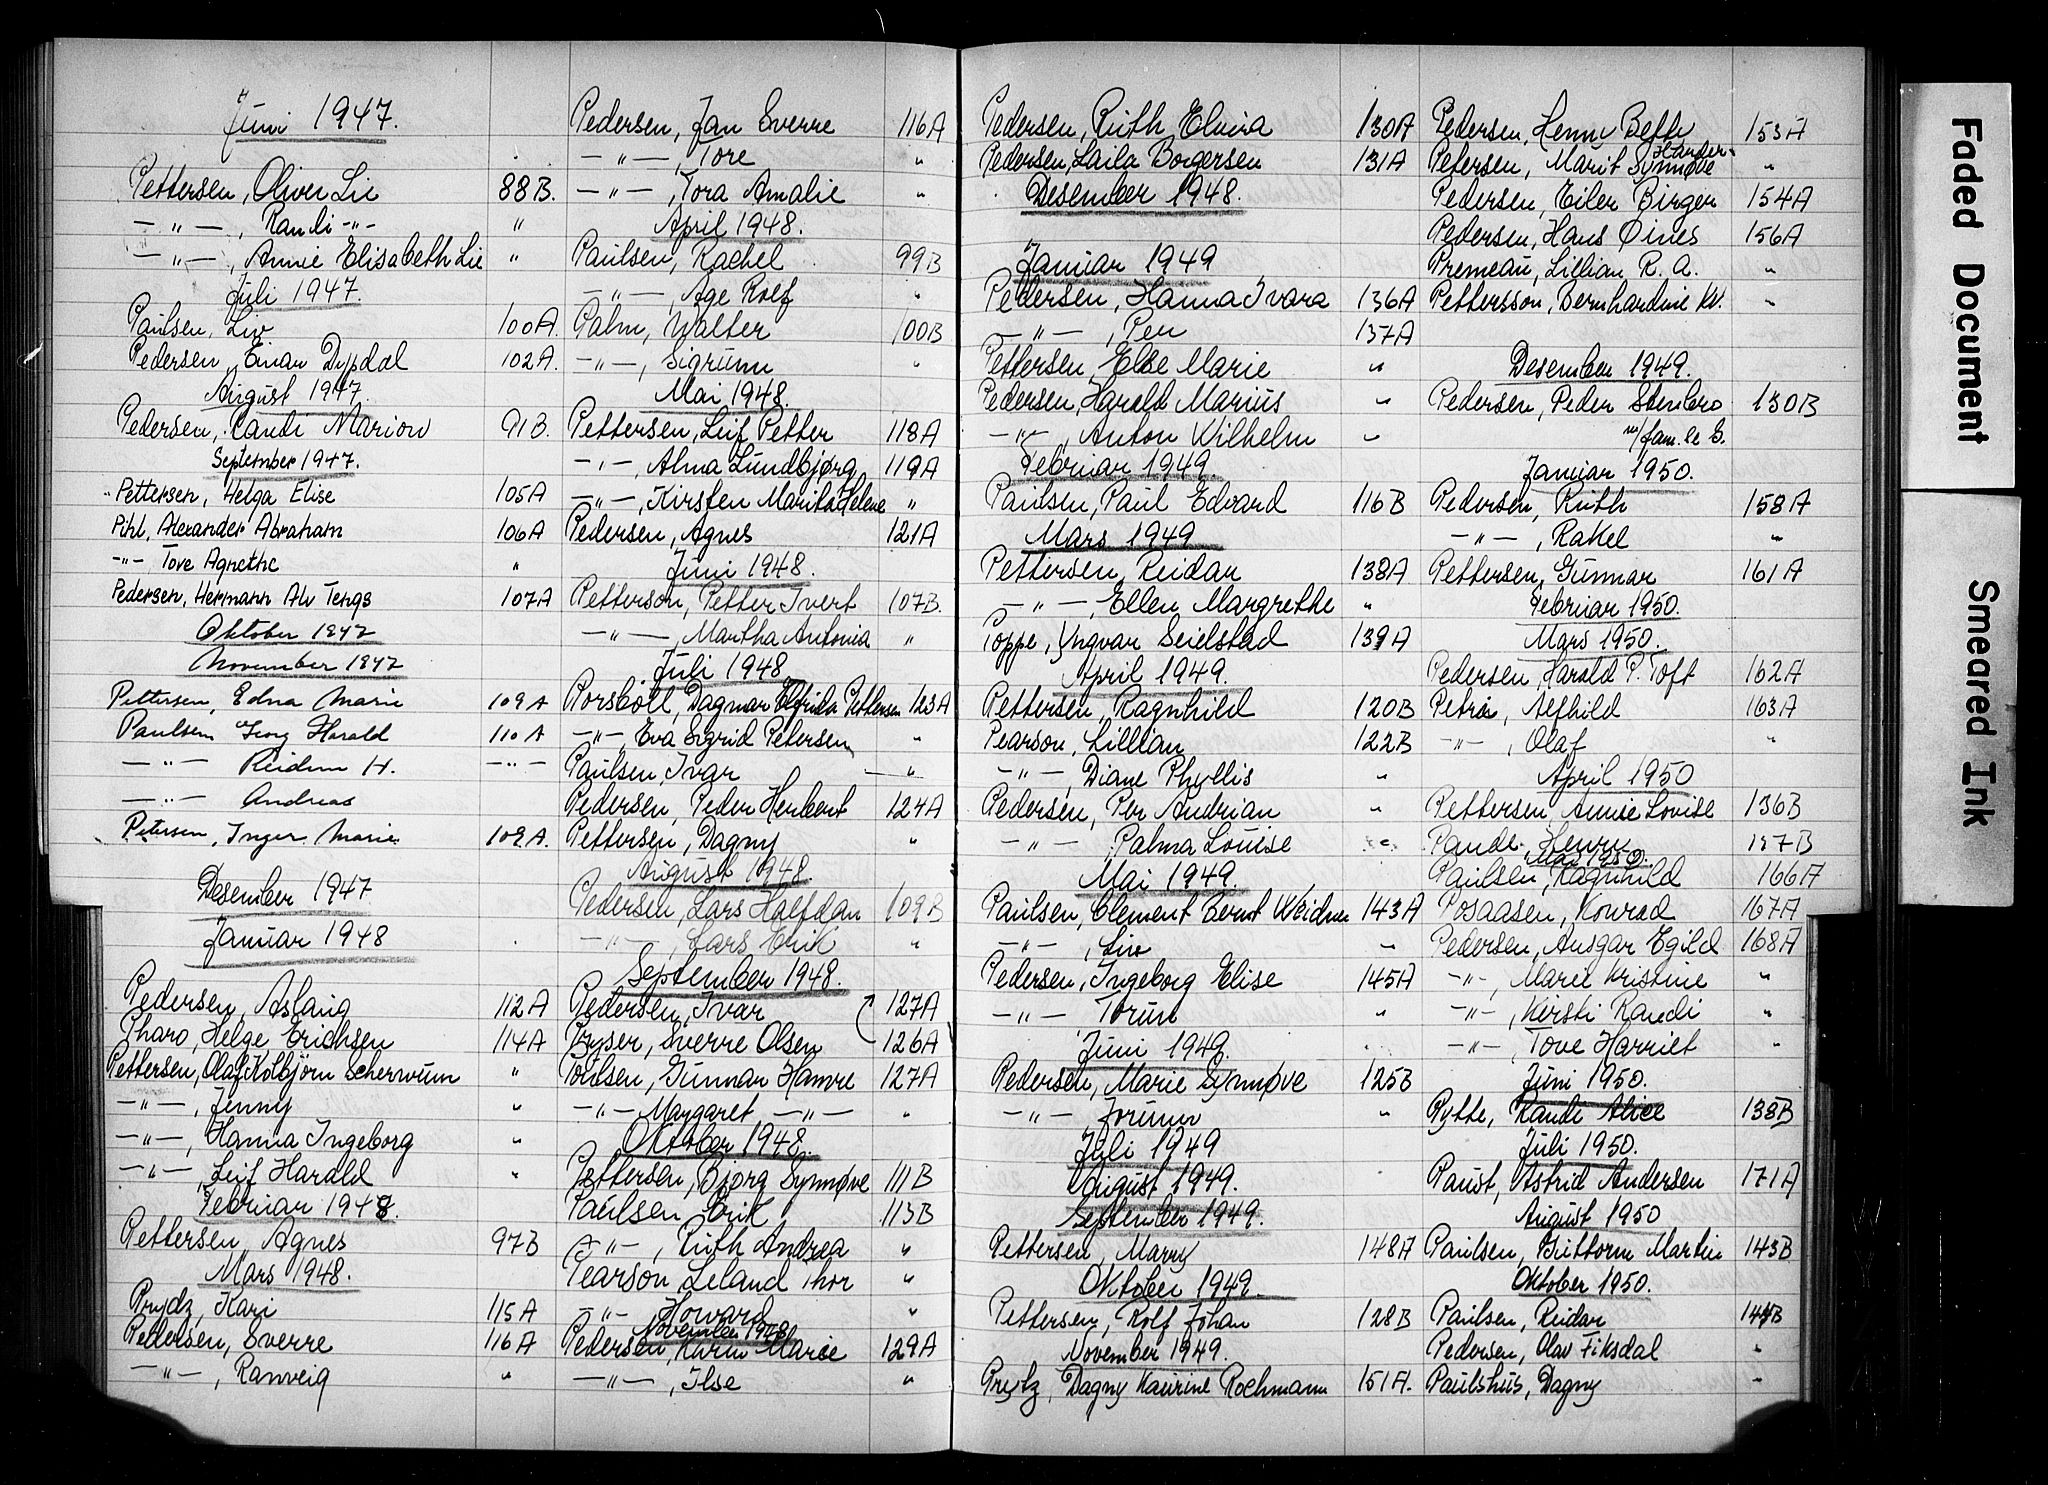 Juni 1947.
Pettersen, Oliver Lie 88B.
-"-, Randi -"- "
-"-, Annie Elisabeth Lie "
Juli 1947.
Paulsen, Liv. 100A.
Pedersen, Einar Dypdal 102A.
August 1947.
Pedersen, Randi Marion 91B.
September 1947.
Pettersen, Helga Elise 105A
Pihl, Alexander Abraham 106A
-"- Tove Agnethe "
Pedersen, Hermann Alv Tengs 107A
Oktober 1947
November 1947
Pettersen, Edna Marie 109A
Paulsen Georg Harald 110A
-"- Reidun H. -"-
-"- Andreas
Petersen, Inger Marie 109A.
Desember 1947
Januar 1948
Pedersen, Aslaug 112A
Pharo, Helge Erichsen 114A
Pettersen, Olaf Kolbjörn Scherwum "
-"-, Jenny "
-"-, Hanna Ingeborg "
-"-, Leif Harald "
Februar 1948.
Pettersen Agnes 97B
Mars 1948.
Prydz, Kari 115A
Pedersen, Sverre 116A
-"-, Ranveig "
Pedersen, Jan Sverre 116A
-"-, Tore "
-"-, Tora Amalie "
April 1948.
Paulsen, Rachel 99B
-"-, Åge Rolf "
Palm, Walter 100B
-"-, Sigrunn "
Mai 1948.
Pettersen, Leif Petter 118A
-"-, Alma Lundbjørg 119A
-"-, Kirsten Marita Helene "
Pedersen, Agnes 121A
Juni 1948.
Petterson, Petter Ivert 107B.
-"-, Martha Antonia "
Juli 1948
Porsböll, Dagmar Elfrida Pettersen 123A
-"-, Eva Sigrid Petersen "
Paulsen, Ivar "
Pedersen, Peder Herbert 124A
Pettersen, Dagny "
August 1948.
Pedersen, Lars Halfdan 109B
-"-, Lars Erik "
September 1948.
Pedersen, Ivar 127A
Pryser, Sverre Olsen 126A
Poulsen, Gunnar Hamre 127A
-"- Margaret -"- "
Oktober 1948.
Pettersen, Bjorg Synnøve 111B
Paulsen Erik 113B
-"-, Ruth Andrea "
Pearson, Leland Thor "
-"- Howard "
November 1948
Pedersen, Karin Marie 129A
-"-, Ilse "
Pedersen, Ruth Elvira 130A
Pedersen, Laila Borgersen 131A
Desember 1948.
Januar 1949
Pedersen, Hanna Ivara 136A
-"-, Per 137A
Pettersen, Else Marie "
Pedersen, Harald Marius "
-"-, Anton Wilhelm "
Februar 1949.
Paulsen, Paul Edvard 116B
Mars 1949
Pettersen, Reidar 138A
-"-, Ellen Margrethe "
Poppe, Yngvar Seielstad 139A
April 1949.
Pettersen, Ragnhild 120B
Pearson, Lillian 122B
-"-, Diane Phyllis "
Pedersen, Per Andrian "
-"- Palma Louise
Mai 1949.
Paulsen, Clement Bernt Weidner 143A
-"-, Liv "
Pedersen, Ingeborg Elise 145A
-"- Torun
Juni 1949.
Pedersen, Marie Synnøve 125B
-"- Jorunn "
Juli 1949
August 1949.
September 1949.
Pettersen, Marry 148A
Oktober 1949.
Pettersen, Rolf Johan 128B
November 1949.
Preytz, Dagny Kaurine Rochmann 151A.
Pedersen, Henny Betty 153A
Hander-
Petersen, Marit Synnøve "
Pedersen, Eiler Birger 154A
Pedersen, Hans Øines 156A
Premeau, Lillian R. A. "
Pettersson, Bernhardine Kr. "
Desember 1949.
Pedersen, Peder Stenbro 130B
m/fam.
Januar 1950.
Pedersen, Ruth 158A
-"-, Rakel "
Pettersen, Gunnar 161A
Februar 1950.
Mars 1950.
Pedersen, Harald P. Toft 162A
Petra, Alfhild 163A
-"-, Olaf "
April 1950
Pettersen, Annie Lovise 136B
Pande, Henry 137B
Mai 1950.
Paulsen, Ragnhild 166A
Posaasen, Konrad 167A
Pedersen, Ansgar Egild 168A
-"-, Marie Kristine "
-"-, Kirsti Randi "
-"-, Tove Harriet "
Juni 1950.
Pytte, Randi Alice 138B
Juli 1950.
Paust, Astrid Andersen 171A
August 1950
Paulsen, Guttorm Martin 143B
Oktober 1950.
Paulsen, Reidar 144B
Pedersen, Olav Fiksdal "
Paulshus, Dagny "
Faded Document
Smeared Ink